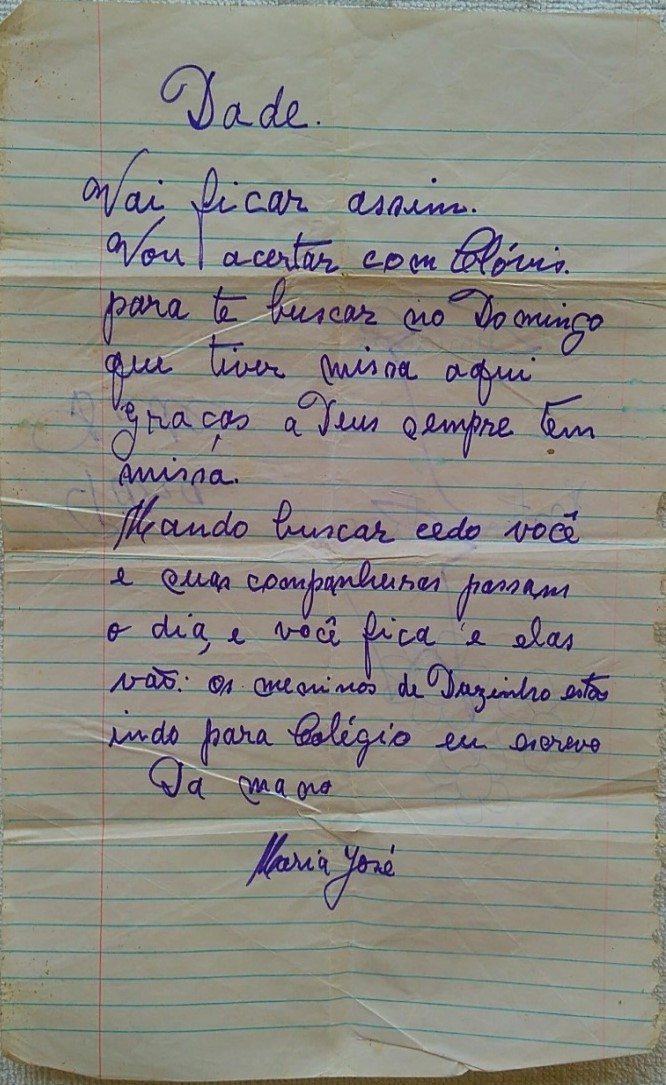 Dade.
Vai ficar assim.
Vou acertar com Clóvis.
para te buscar no Domingo
que tiver missa aqui
graças a Deus sempre tem
missa.
Mando buscar cedo você
e suas companheiras passam
o dia, e você fica e elas
vão: os meninos de Duzinho estão
indo para Colégio eu escrevo
Da mana
Maria José